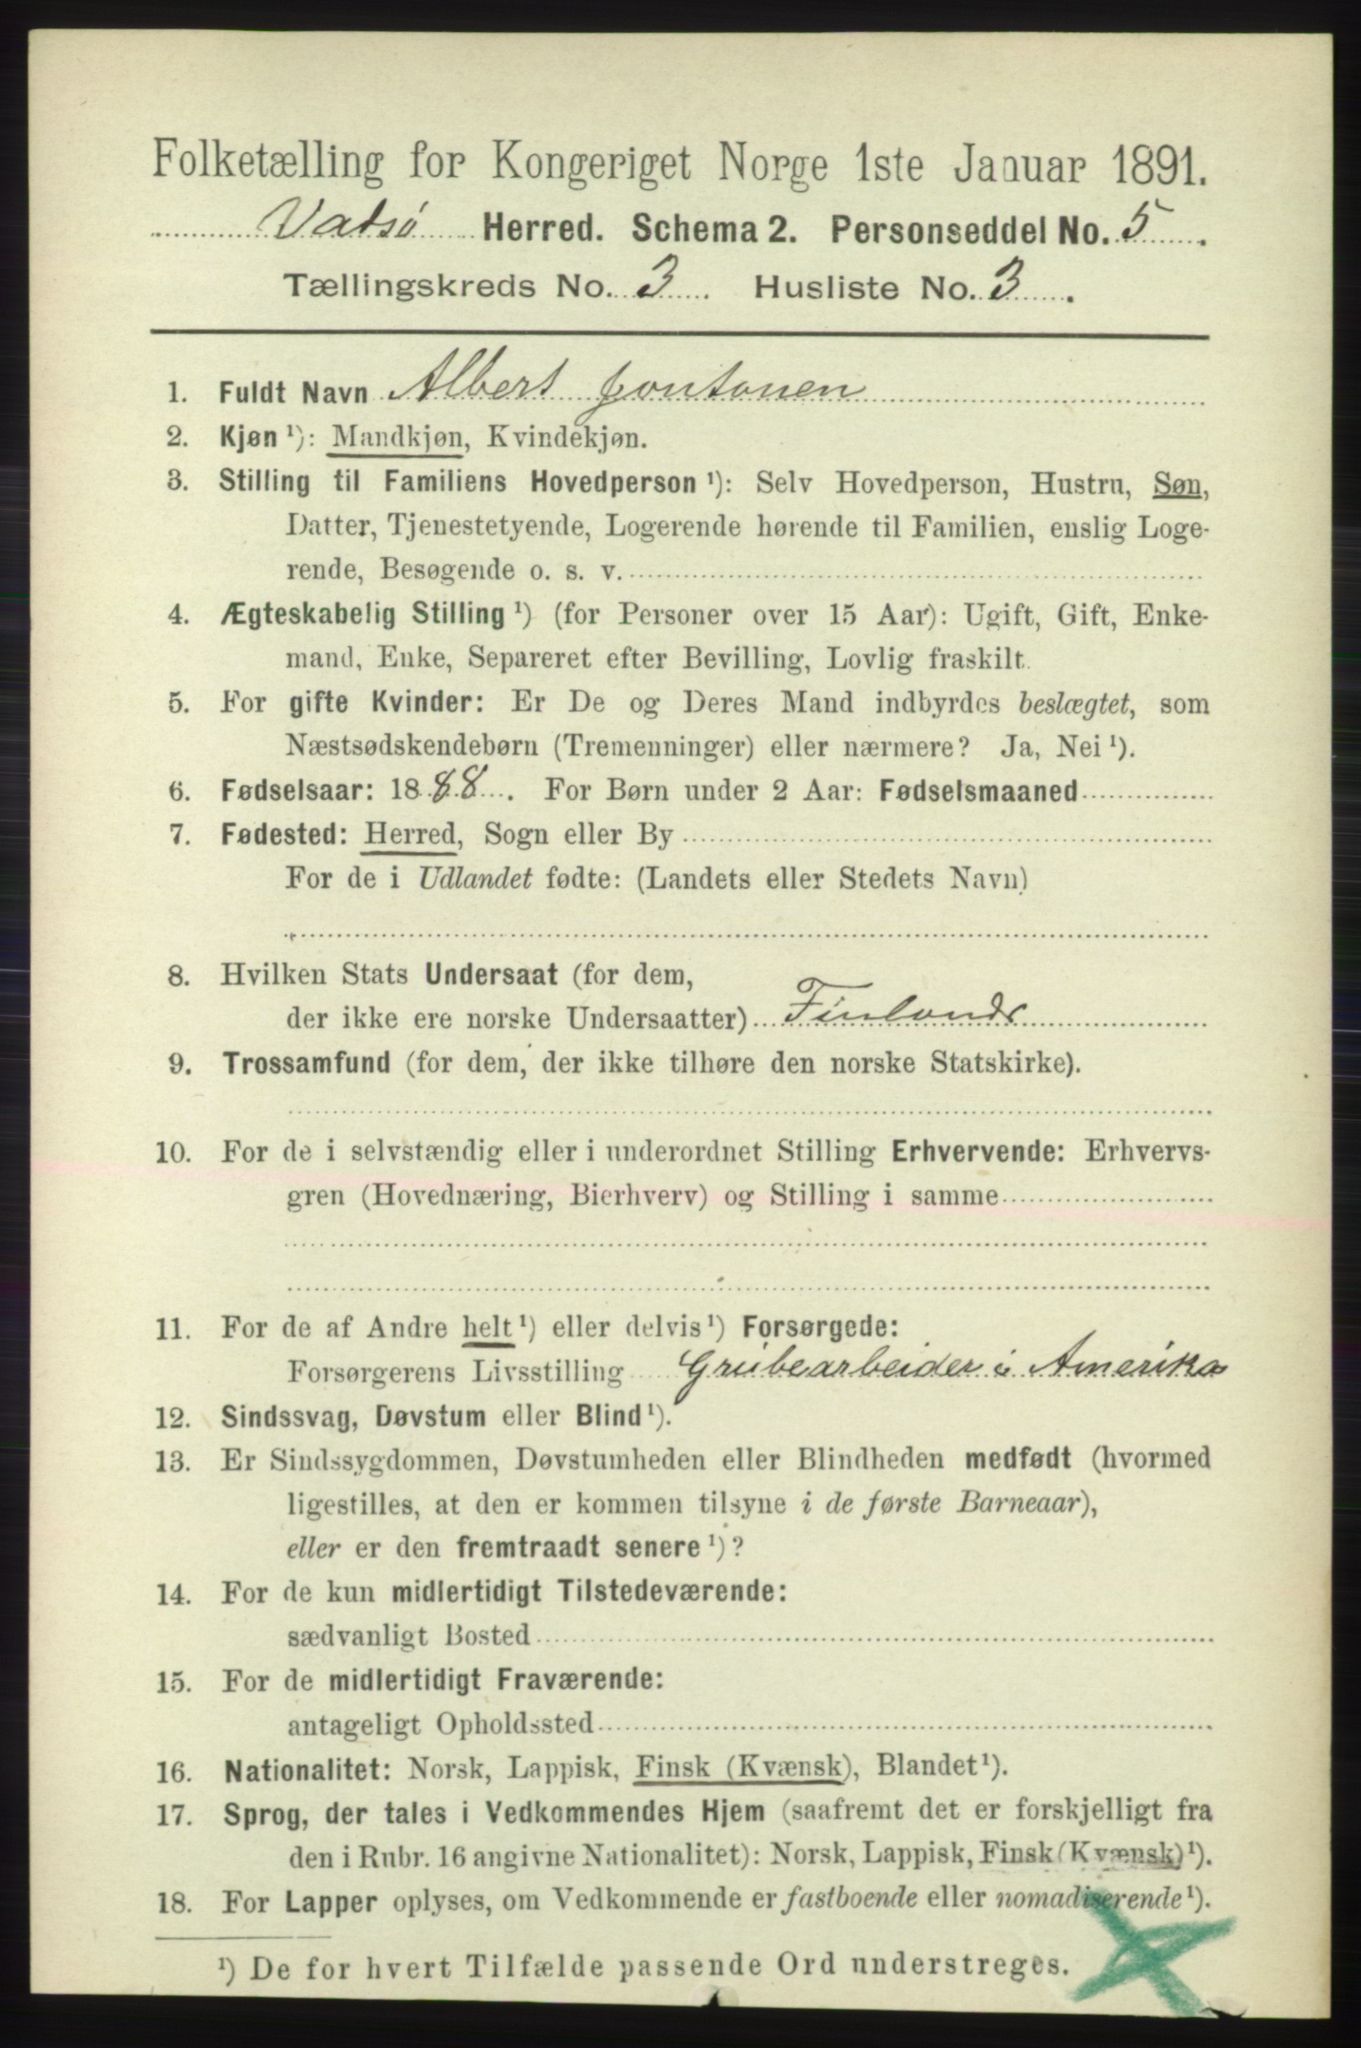 Folketælling for Kongeriget Norge 1ste Januar 1891.
Vadsø Herred. Schema 2. Personseddel No. 5.
Tællingskreds No. 3. Husliste No. 3.
1. Fuldt Navn Albert Jontonen
2. Kjøn ¹): Mandkjøn, Kvindekjøn.
3. Stilling til Familiens Hovedperson ¹): Selv Hovedperson, Hustru, Søn,
Datter, Tjenestetyende, Logerende hørende til Familien, enslig Loge-
rende, Besøgende o. s. v.
4. Ægteskabelig Stilling ¹) (for Personer over 15 Aar): Ugift, Gift, Enke-
mand, Enke, Separeret efter Bevilling, Lovlig fraskilt.
5. For gifte Kvinder: Er De og Deres Mand indbyrdes beslægtet, som
Næstsødskendebørn (Tremenninger) eller nærmere? Ja, Nei ¹).
6. Fødselsaar: 1888. For Børn under 2 Aar: Fødselsmaaned
7. Fødested: Herred, Sogn eller By
For de i Udlandet fødte: (Landets eller Stedets Navn)
8. Hvilken Stats Undersaat (for dem,
der ikke ere norske Undersaatter) Finlands
9. Trossamfund (for dem, der ikke tilhøre den norske Statskirke).
10. For de i selvstændig eller i underordnet Stilling Erhvervende: Erhvervs-
gren (Hovednæring, Bierhverv) og Stilling i samme
11. For de af Andre helt ¹) eller delvis ¹) Forsørgede:
Forsørgerens Livsstilling Grubearbeider i Amerika
12. Sindssvag, Døvstum eller Blind ¹).
13. Er Sindssygdommen, Døvstumheden eller Blindheden medfødt (hvormed
ligestilles, at den er kommen tilsyne i de første Barneaar),
eller er den fremtraadt senere ¹)?
14. For de kun midlertidigt Tilstedeværende:
sædvanligt Bosted
15. For de midlertidigt Fraværende:
antageligt Opholdssted
16. Nationalitet: Norsk, Lappisk, Finsk (Kvænsk), Blandet ¹).
17. Sprog, der tales i Vedkommendes Hjem (saafremt det er forskjelligt fra
den i Rubr. 16 angivne Nationalitet): Norsk, Lappisk, Finsk (Kvænsk) ¹).
18. For Lapper oplyses, om Vedkommende er fastboende eller nomadiserende ¹).
¹) De for hvert Tilfælde passende Ord understreges.